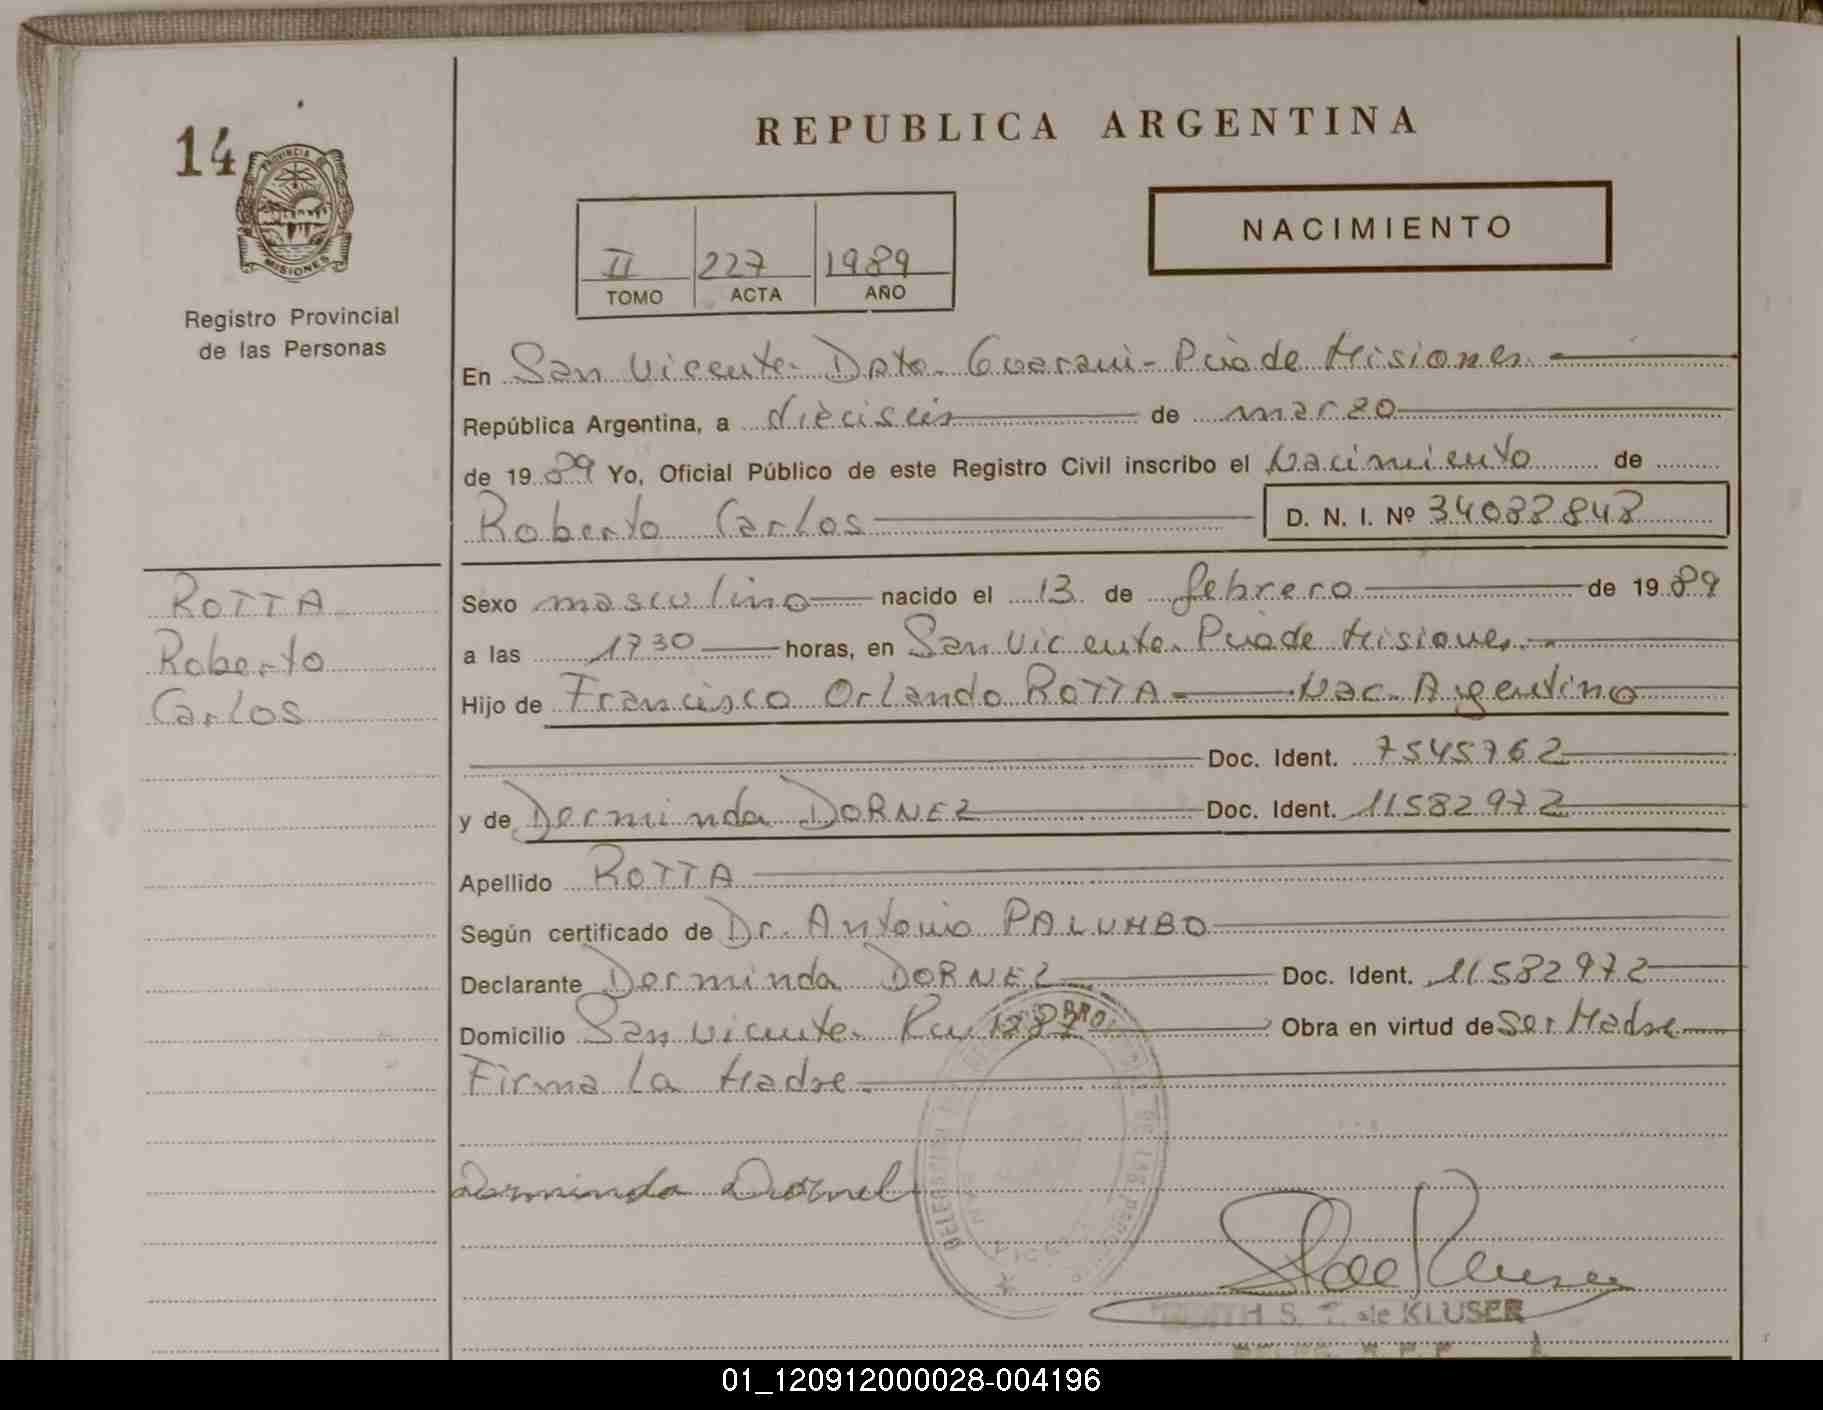 14
PROVINCIA DE
MISIONES
Registro Provincial
de las Personas
REPUBLICA ARGENTINA
NACIMIENTO
II 227 1989
TOMO ACTA AÑO
En San Vicente - Dpto. Guaraní - Pcia de Misiones
República Argentina, a dieciseis de marzo
de 1989 Yo, Oficial Público de este Registro Civil inscribo el Nacimiento de
Roberto Carlos D. N. I. Nº 34088848
ROTTA
Roberto
Carlos
Sexo masculino nacido el 13 de febrero de 1989
a las 1730 horas, en San Vicente. Pcia de Misiones.
Hijo de Francisco Orlando ROTTA Nac. Argentino
Doc. Ident. 7545762
y de Derminda DORNEZ Doc. Ident. 11582972
Apellido ROTTA
Según certificado de Dr. Antonio PALUMBO
Declarante Derminda DORNEZ Doc. Ident. 11582972
Domicilio San Vicente. Obra en virtud de Ser Madre
Firma La Madre.
Derminda Dornel
DELEGACION
DE LAS PERSONAS
S. T. de KLUSER
01_120912000028-004196